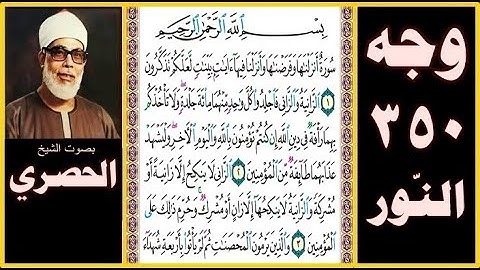 وجه
٣٥٠
النّور
بِسْمِ اللَّهِ الرَّحْمَٰنِ الرَّحِيمِ
سُورَةٌ أَنزَلْنَاهَا وَفَرَضْنَاهَا وَأَنزَلْنَا فِيهَا آيَاتٍ بَيِّنَاتٍ لَّعَلَّكُمْ تَذَكَّرُونَ
١ الزَّانِيَةُ وَالزَّانِي فَاجْلِدُوا كُلَّ وَاحِدٍ مِّنْهُمَا مِائَةَ جَلْدَةٍ وَلَا تَأْخُذْكُم
بِهِمَا رَأْفَةٌ فِي دِينِ اللَّهِ إِن كُنتُمْ تُؤْمِنُونَ بِاللَّهِ وَالْيَوْمِ الْآخِرِ وَلْيَشْهَدْ
عَذَابَهُمَا طَائِفَةٌ مِّنَ الْمُؤْمِنِينَ ٢ الزَّانِي لَا يَنكِحُ إِلَّا زَانِيَةً أَوْ
مُشْرِكَةً وَالزَّانِيَةُ لَا يَنكِحُهَا إِلَّا زَانٍ أَوْ مُشْرِكٌ وَحُرِّمَ ذَٰلِكَ عَلَى
الْمُؤْمِنِينَ ٣ وَالَّذِينَ يَرْمُونَ الْمُحْصَنَاتِ ثُمَّ لَمْ يَأْتُوا بِأَرْبَعَةِ شُهَدَاءَ
بصوت الشيخ
الحصري